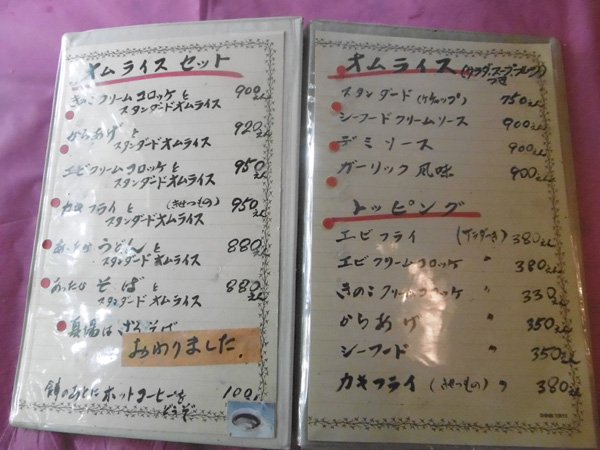 オムライスセット
きのこクリームコロッケと 900えん
スタンダードオムライス
からあげと 920えん
スタンダードオムライス
エビクリームコロッケと 950えん
スタンダードオムライス
カキフライと (きせつもの) 950えん
スタンダードオムライス
あったかうどんと 880えん
スタンダードオムライス
あったかそばと 880えん
スタンダードオムライス
夏場は
おわりました。
ホットコーヒーを 100
どうぞ
オムライス(サラダ、スープ
つき
スタンダード (ケチャップ) 750えん
シーフードクリームソース 900えん
デミソース 900えん
ガーリック風味 900えん
トッピング
エビフライ 380えん
エビクリームコロッケ 〃 380えん
きのこクリームコロッケ 〃 330えん
からあげ 〃 350えん
シーフード 〃 350えん
カキフライ (きせつもの) 〃 380えん